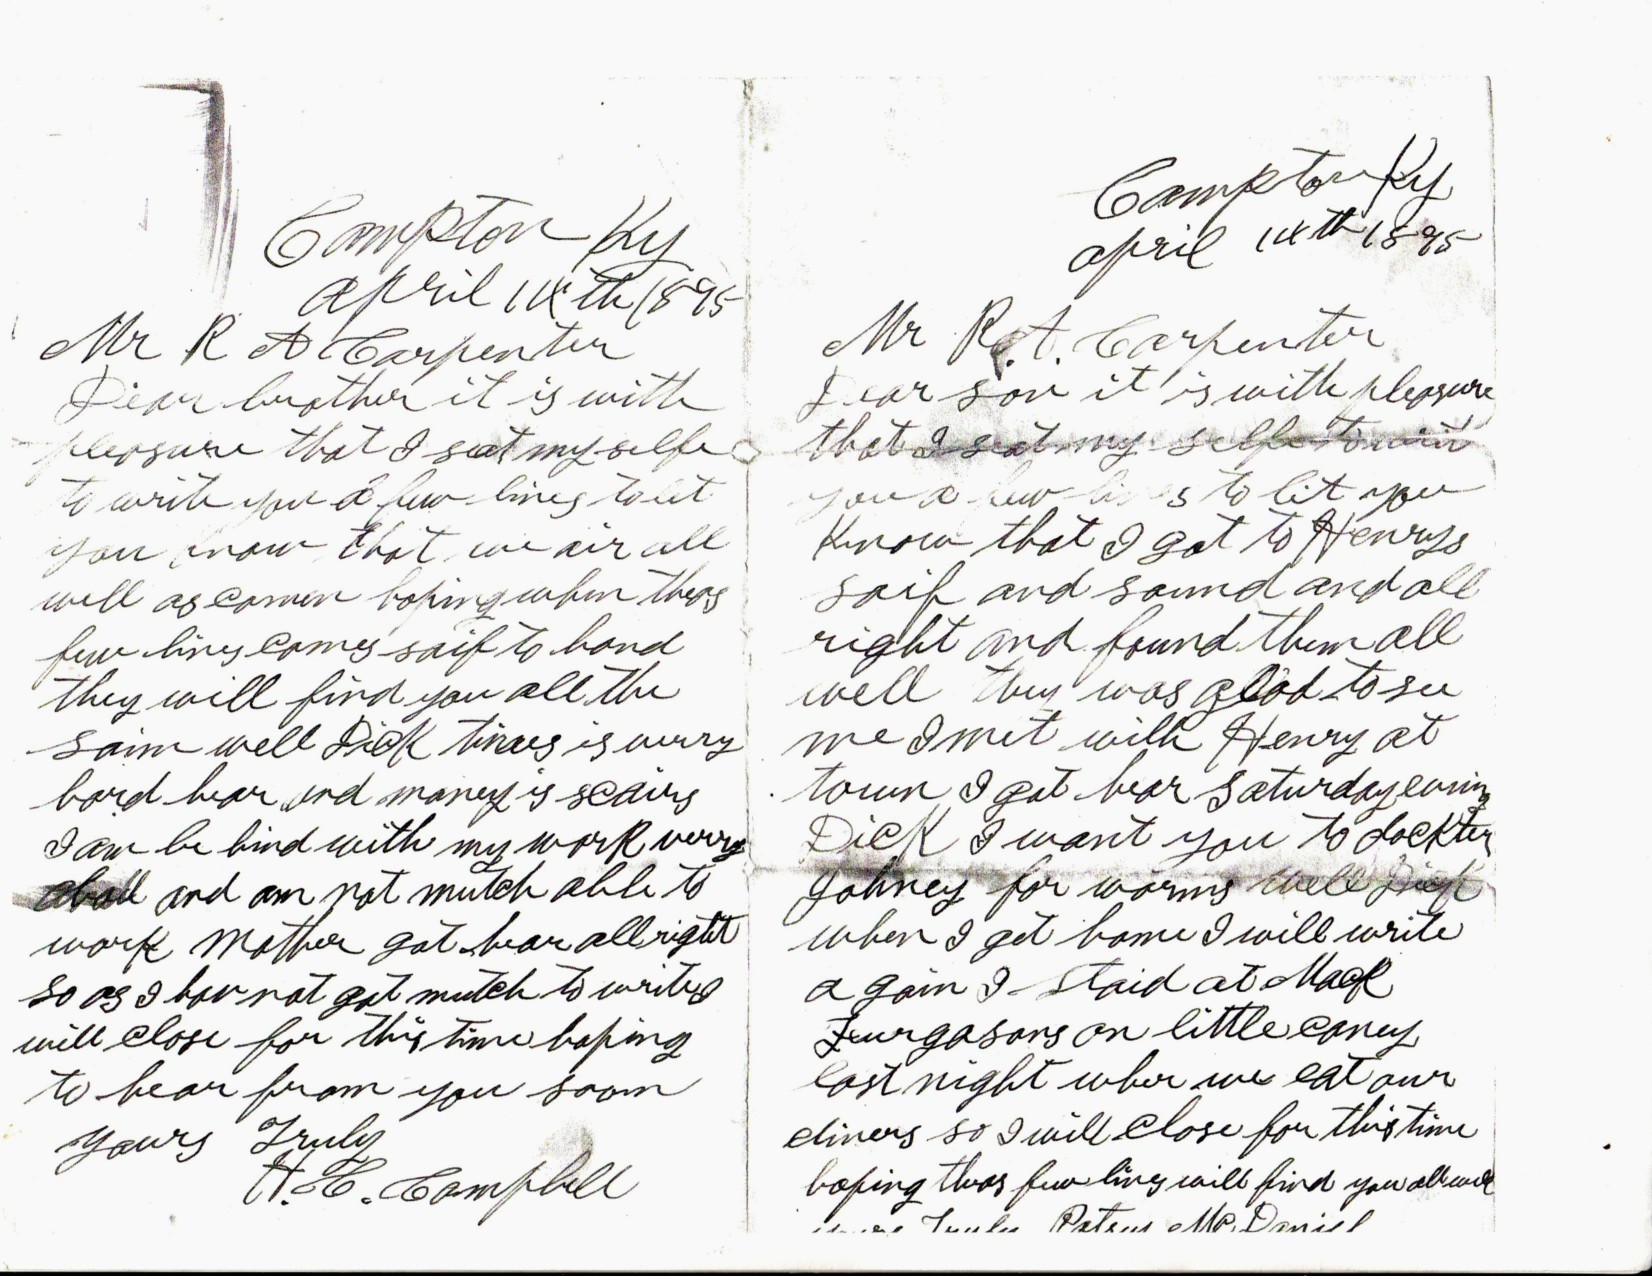 Campton Ky
april 14th 1895
Mr R A Carpenter
Dear brother it is with
pleasure that I seat my selfe
to write you a few lines to let
you know that we air all
well as comen hoping when theas
few lines comes saif to hand
they will find you all the
saim well Dick times is verry
hard hear and money is scairs
I am be hind with my work verry
and am not mutch able to
work Mother got hear all right
so as I hav not got mutch to write I
will close for this time hoping
to hear from you soon
yours Truly
H. C. Campbell
Campton Ky
april 14th 1895
Mr R. A. Carpenter
Dear son it is with pleasure
that I seat my selfe to writ
you a few lines to let you
Know that I got to Henrys
saif and sound and all
right and found them all
well they was glad to see
me I met with Henry at
town I got hear Saturday evning
Dick I want you to dockter
Johney for worms well Dick
when I get home I will write
a gain I staid at Mack
Furgasons on little caney
last night wher we eat our
diners so I will close for this time
hoping theas few lines will find you all well
yours Truly Patsey McDaniel